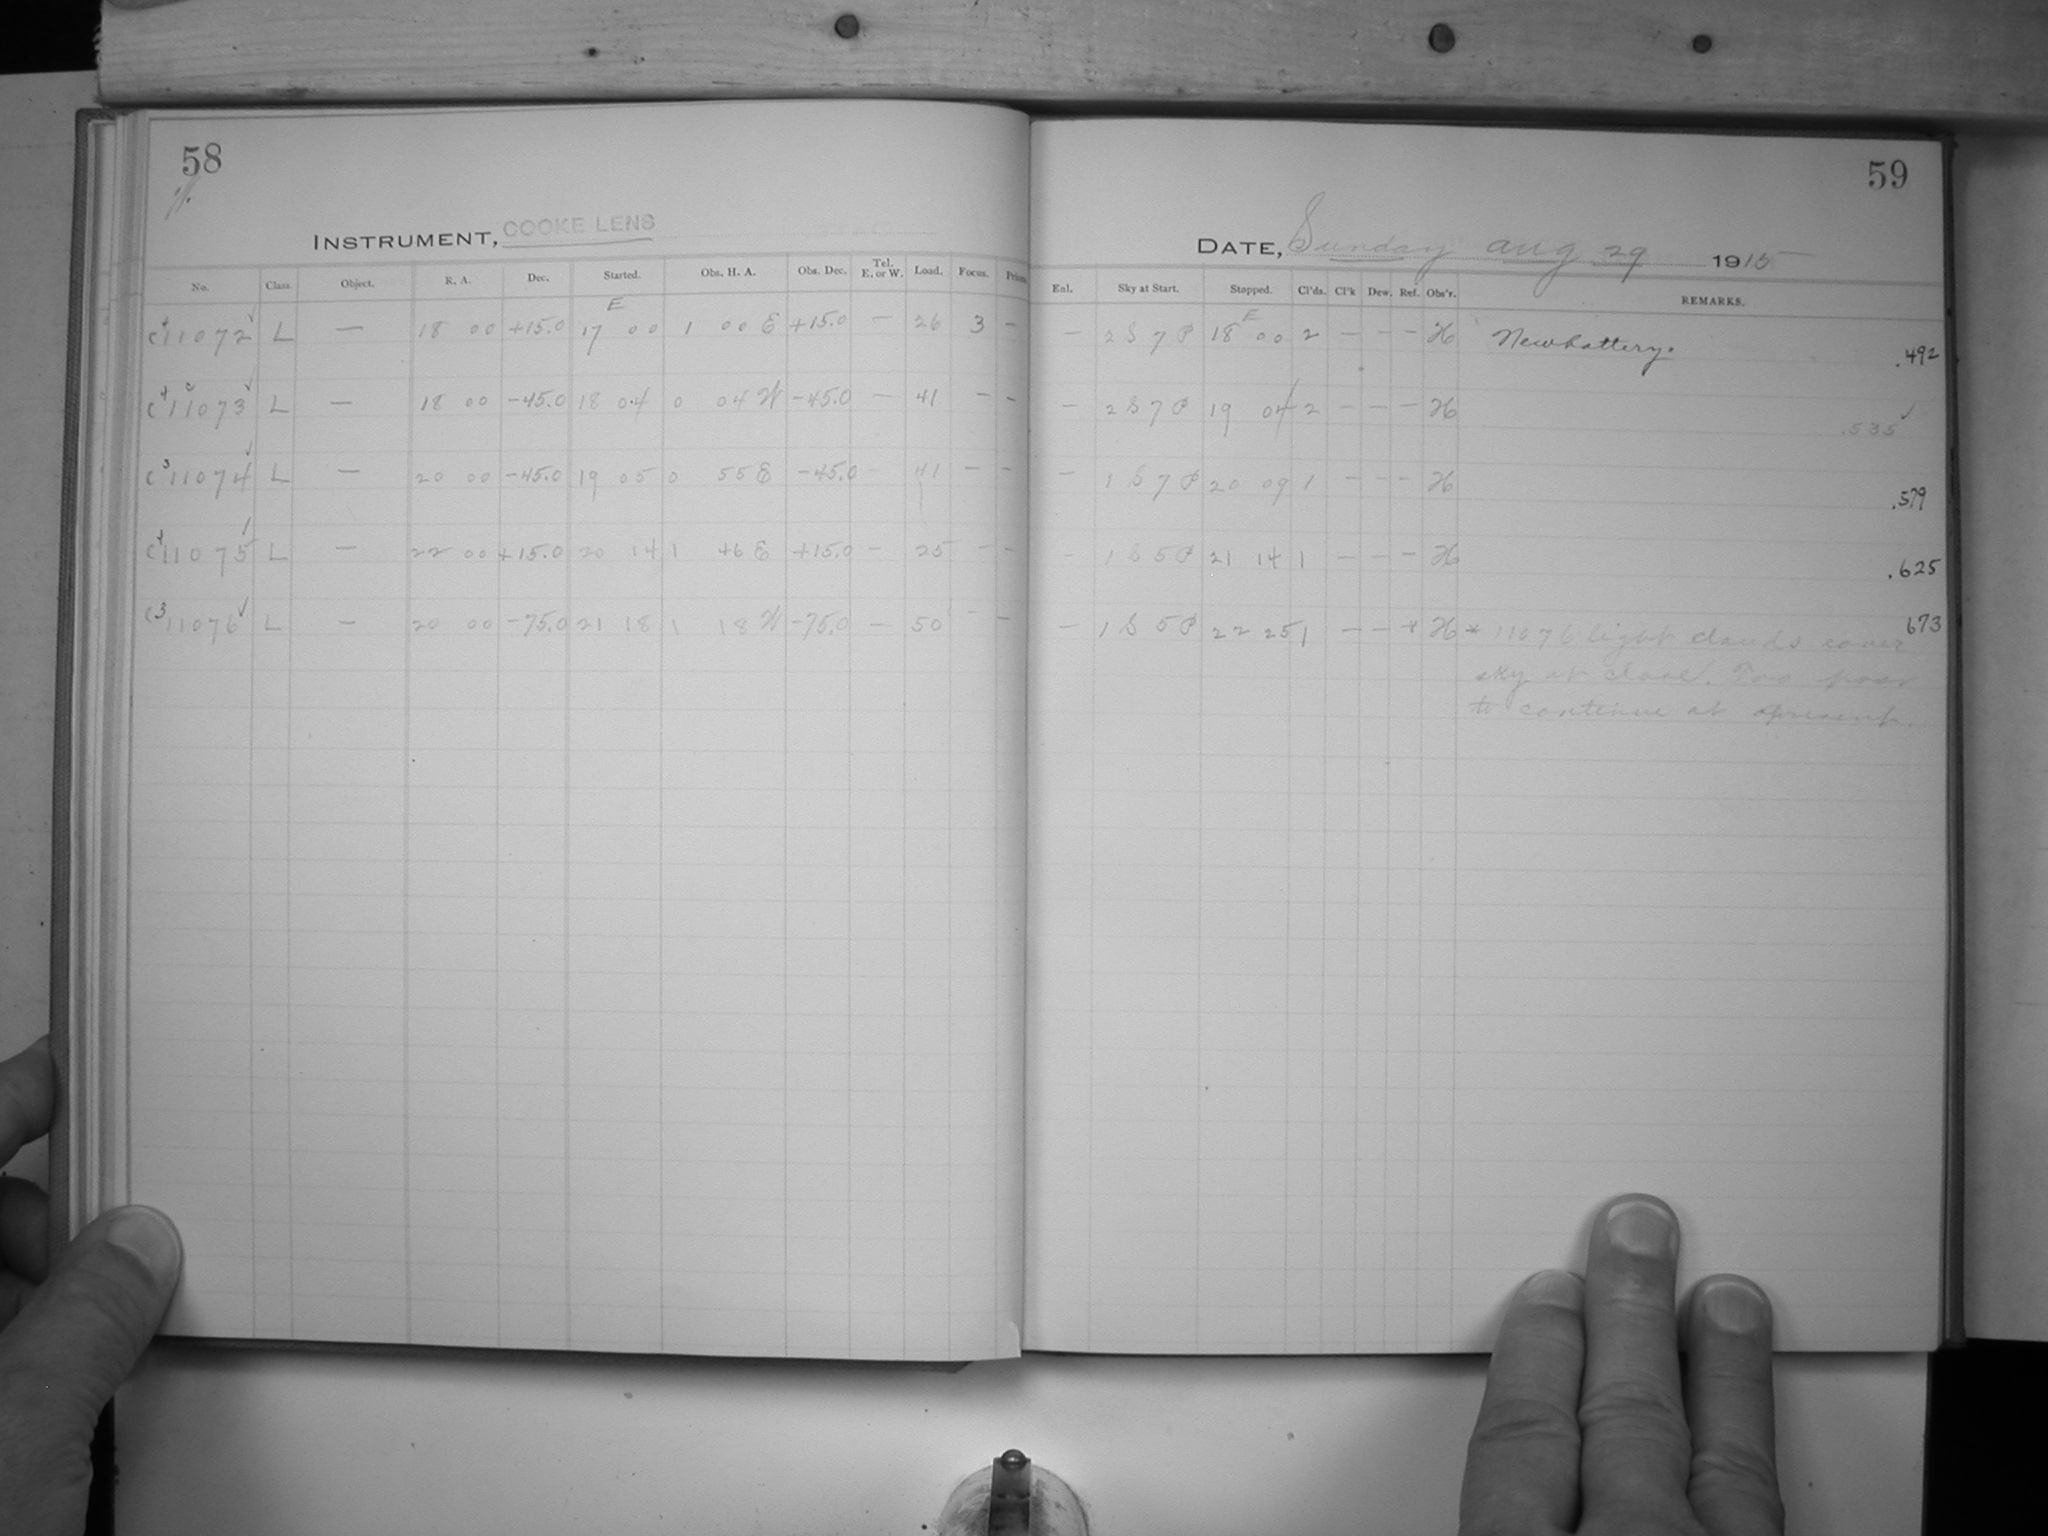 58
59
INSTRUMENT, COOKE LENS
DATE, Sunday Aug 29 1915
No. Class. Object. R. A. Dec. Started. Obs. H. A. Obs. Dec. Tel. E. or W. Load. Focus. Enl. Sky at Start. Stopped. Cl'ds. Cl'k Dew. Ref. Obs'r. REMARKS.
C4 11072 ✓ L — 18 00 +15.0 17 E 00 1 00 E +15.0 — 26 3 — — 2 S 7 P 18 E 00 2 — — — H New battery. .492
C4 11073 ✓ L — 18 00 -45.0 18 04 0 04 W -45.0 — 41 — — — 2 S 7 P 19 04 2 — — — H .535 ✓
C3 11074 ✓ L — 20 00 -45.0 19 05 0 55 E -45.0 — 41 — — — 1 S 7 P 20 09 1 — — — H .579
C4 11075 ✓ L — 22 00 +15.0 20 14 1 46 E +15.0 — 25 — — — 1 S 5 P 21 14 1 — — — H .625
C3 11076 ✓ L — 20 00 -75.0 21 18 1 18 W -75.0 — 50 — — — 1 S 5 P 22 25 1 — — * H * 11076 light clouds cover 673
sky at close. Too poor
to continue at present.